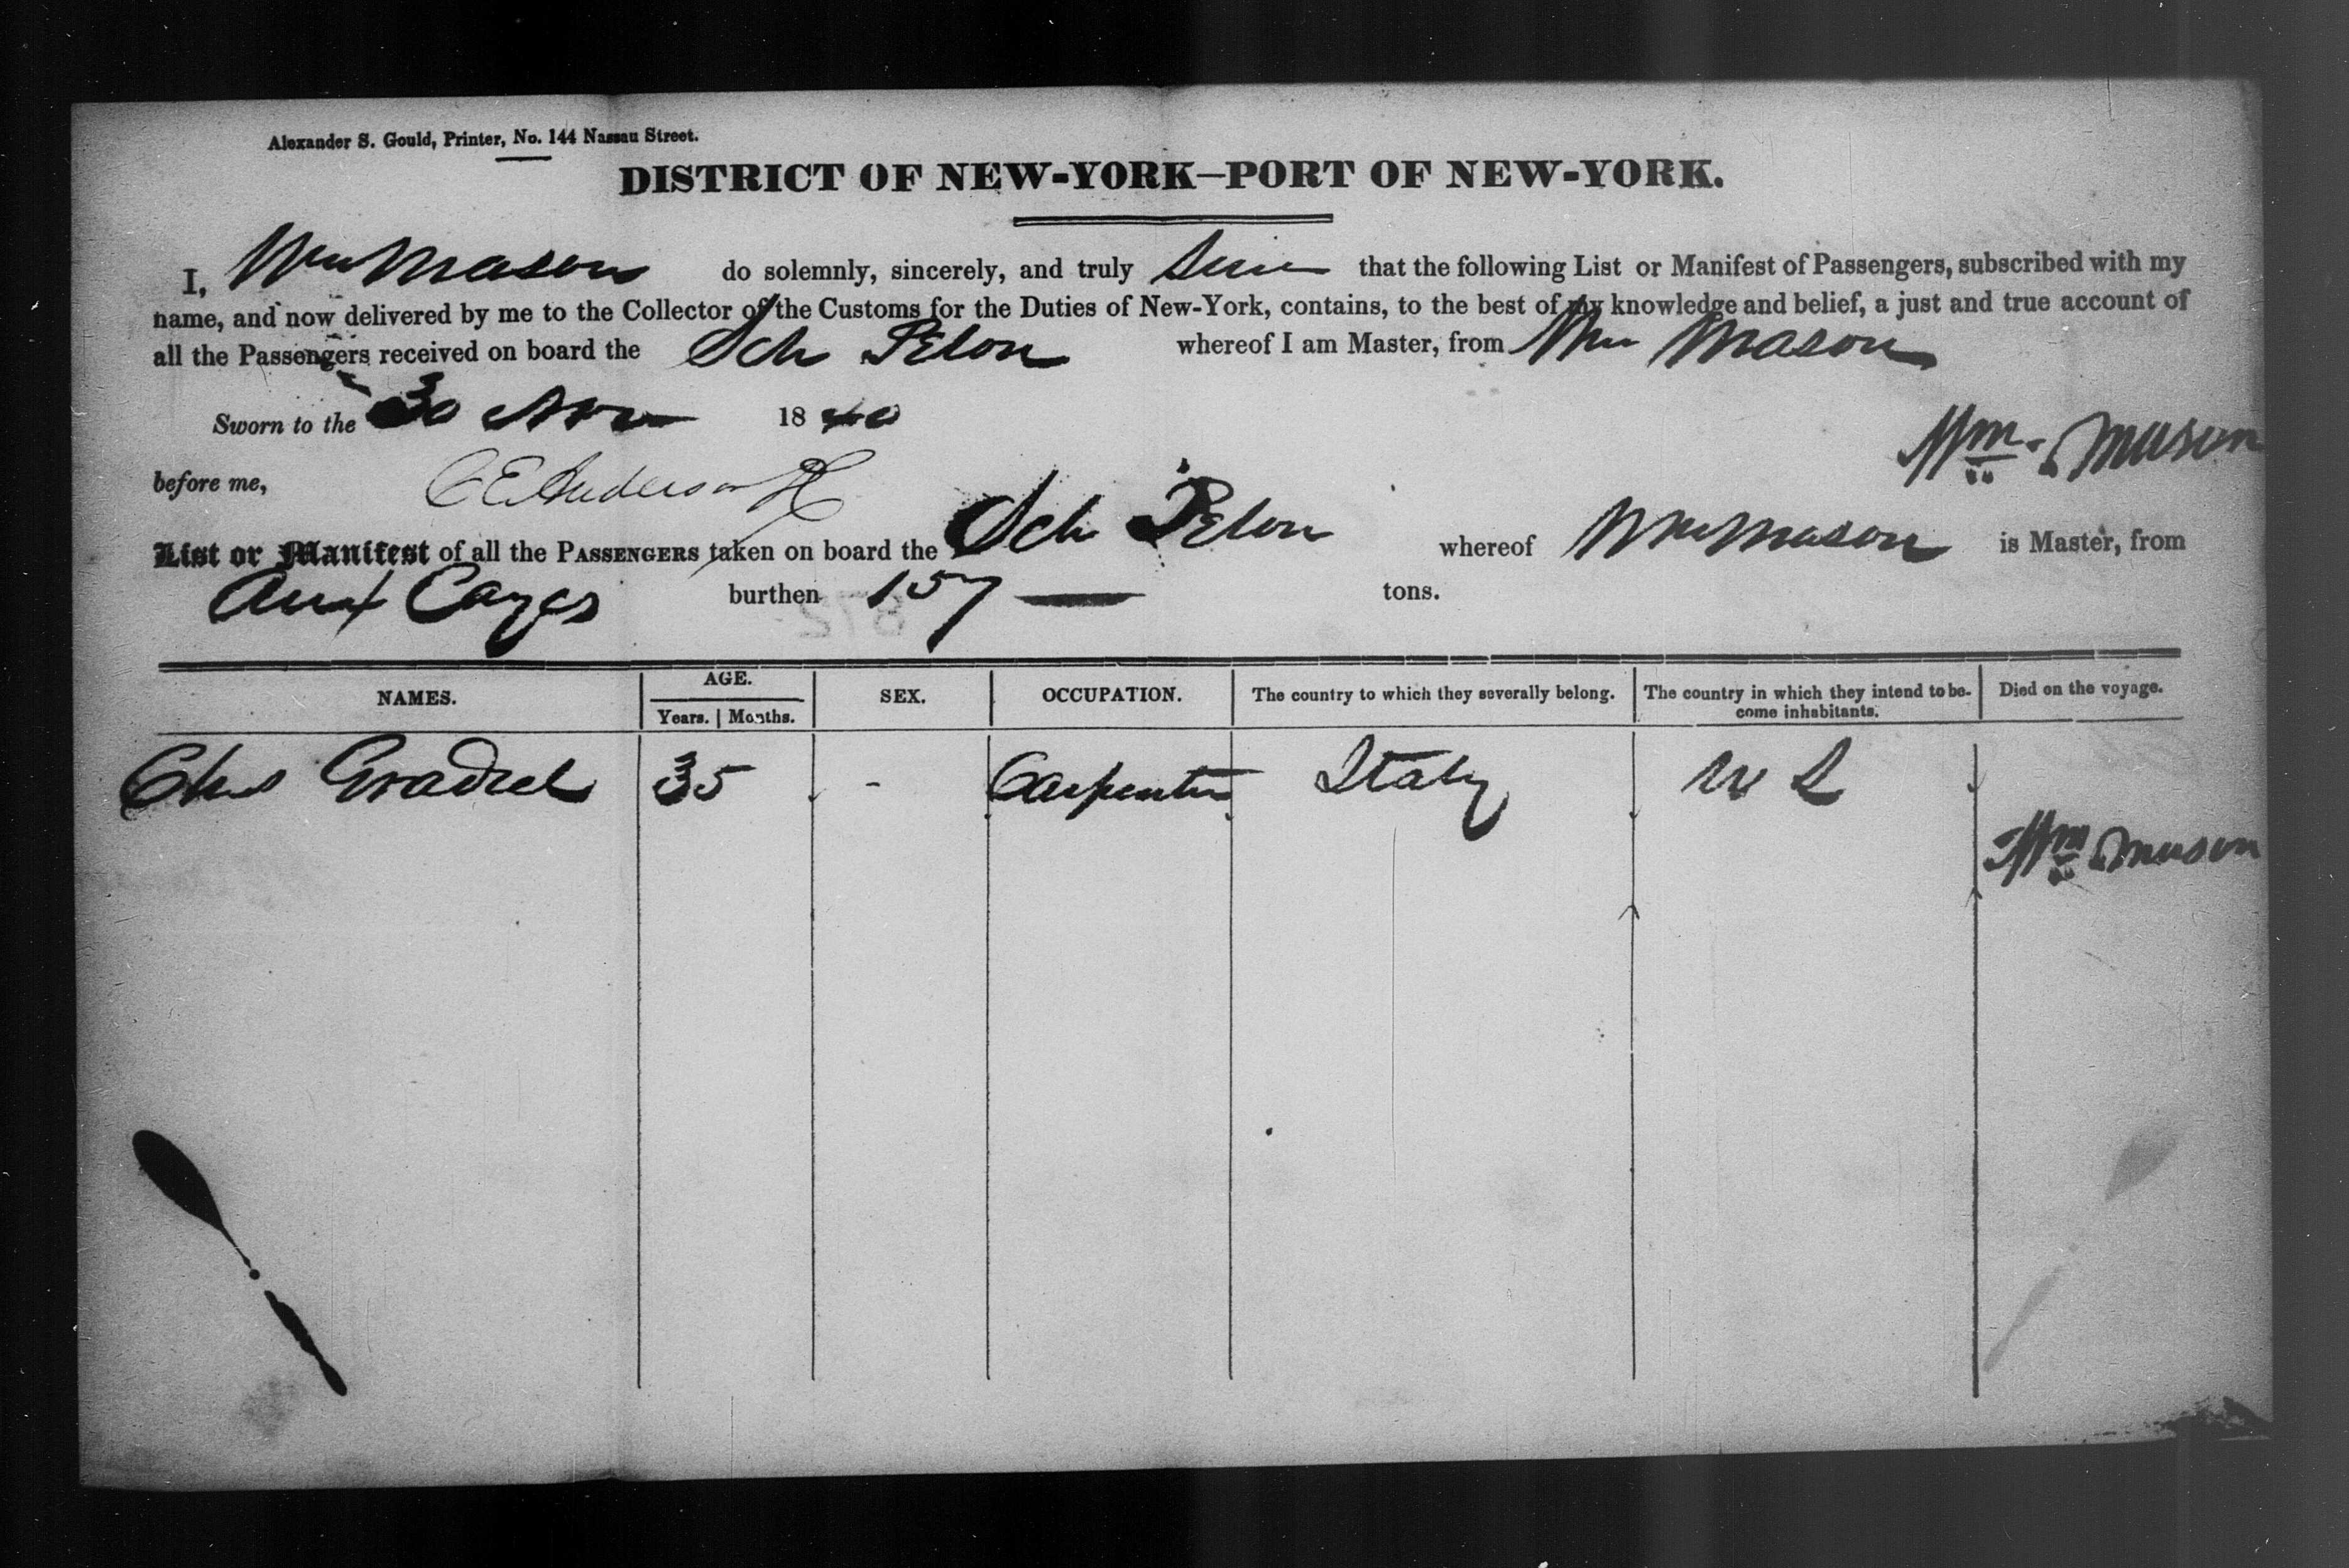 Alexander S. Gould, Printer, No. 144 Nassau Street.
DISTRICT OF NEW-YORK—PORT OF NEW-YORK.
I, Wm Mason do solemnly, sincerely, and truly that the following List or Manifest of Passengers, subscribed with my
name, and now delivered by me to the Collector of the Customs for the Duties of New-York, contains, to the best of my knowledge and belief, a just and true account of
all the Passengers received on board the Sch whereof I am Master, from Wm Mason
Sworn to the 30 Nov 1840
Wm. Mason
before me, C E Anderson
List or Manifest of all the PASSENGERS taken on board the Sch whereof Wm Mason is Master, from
Aux Cayes burthen 157 tons.
NAMES. AGE. SEX. OCCUPATION. The country to which they severally belong. The country in which they intend to be- Died on the voyage.
Years. Months. come inhabitants.
35 - Carpenter Italy
Wm Mason